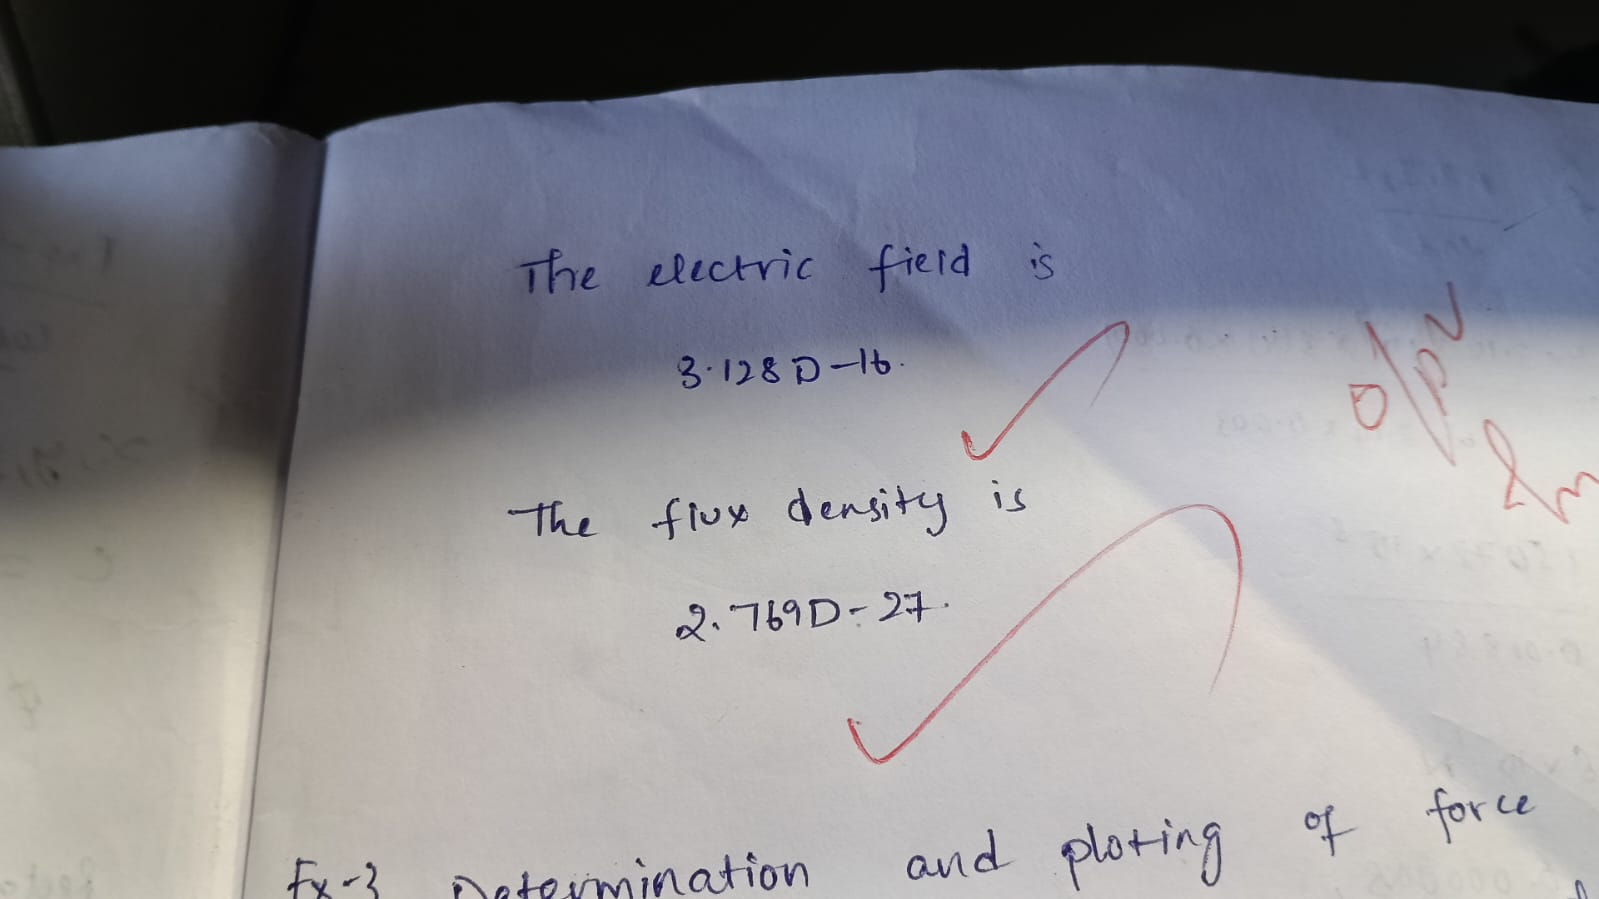 The electric field is
3.128D-16.
The flux density is
2.769D-27.
o/p
Ex-3 Determination and ploting of force